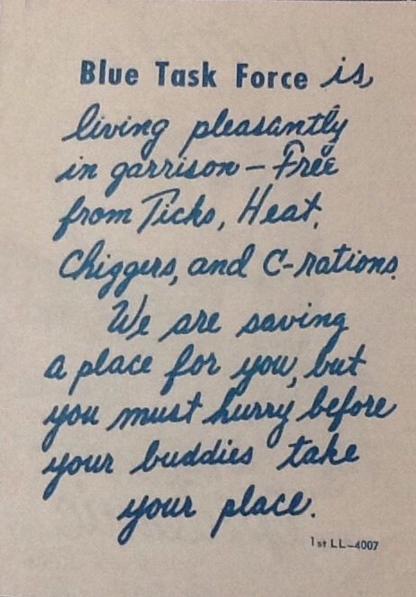 Blue Task Force is
living pleasantly
in garrison – Free
from Ticks, Heat,
Chiggers, and C-rations.
We are saving
a place for you, but
you must hurry before
your buddies take
your place.
1st LL–4007